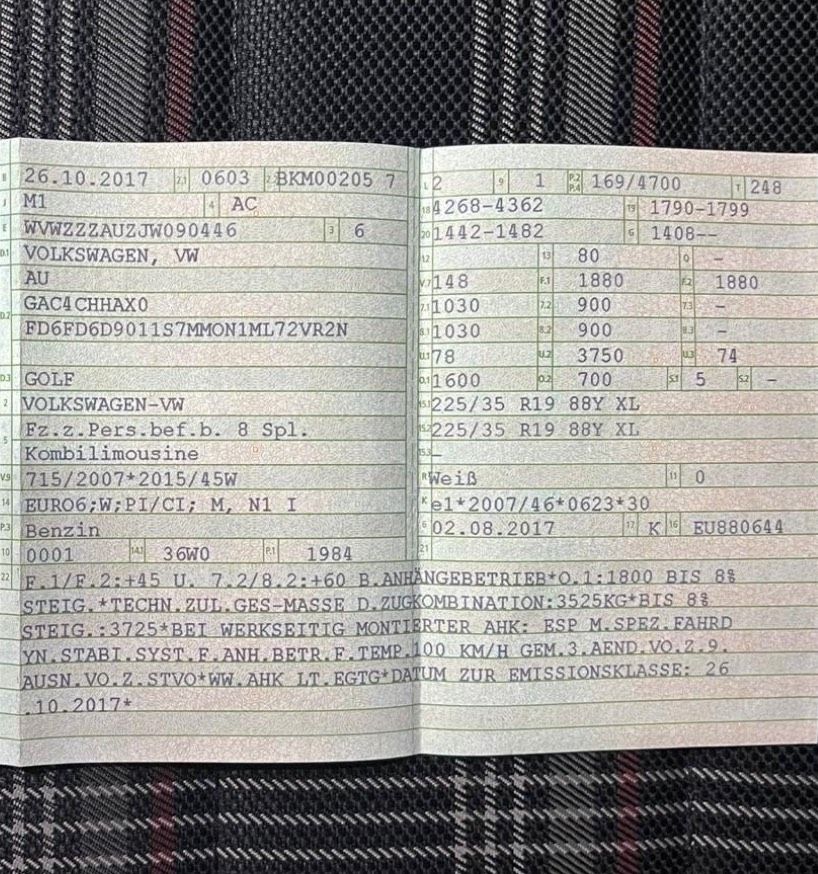 B 26.10.2017 2.1 0603 2.2 BKM00205 7
J M1 4 AC
E WVWZZZAUZJW090446 3 6
D.1 VOLKSWAGEN, VW
AU
D.2 GAC4CHHAX0
FD6FD6D9011S7MMON1ML72VR2N
D.3 GOLF
2 VOLKSWAGEN-VW
5 Fz.z.Pers.bef.b. 8 Spl.
Kombilimousine
V.9 715/2007*2015/45W
14 EURO6;W;PI/CI; M, N1 I
P.3 Benzin
10 0001 14.1 36W0 P.1 1984
L 2 9 1 P.2 P.4 169/4700 T 248
18 4268-4362 19 1790-1799
20 1442-1482 G 1408--
12 13 80 Q -
V.7 148 F.1 1880 F.2 1880
7.1 1030 7.2 900 7.3 -
8.1 1030 8.2 900 8.3 -
U.1 78 U.2 3750 U.3 74
O.1 1600 O.2 700 S.1 5 S.2 -
15.1 225/35 R19 88Y XL
15.2 225/35 R19 88Y XL
15.3 -
R Weiß 11 0
K e1*2007/46*0623*30
6 02.08.2017 17 K 16 EU880644
21
22 F.1/F.2:+45 U. 7.2/8.2:+60 B.ANHÄNGEBETRIEB*O.1:1800 BIS 8%
STEIG.*TECHN.ZUL.GES-MASSE D.ZUGKOMBINATION:3525KG*BIS 8%
STEIG.:3725*BEI WERKSEITIG MONTIERTER AHK: ESP M.SPEZ.FAHRD
YN.STABI.SYST.F.ANH.BETR.F.TEMP.100 KM/H GEM.3.AEND.VO.Z.9.
AUSN.VO.Z.STVO*WW.AHK LT.EGTG*DATUM ZUR EMISSIONSKLASSE: 26
.10.2017*